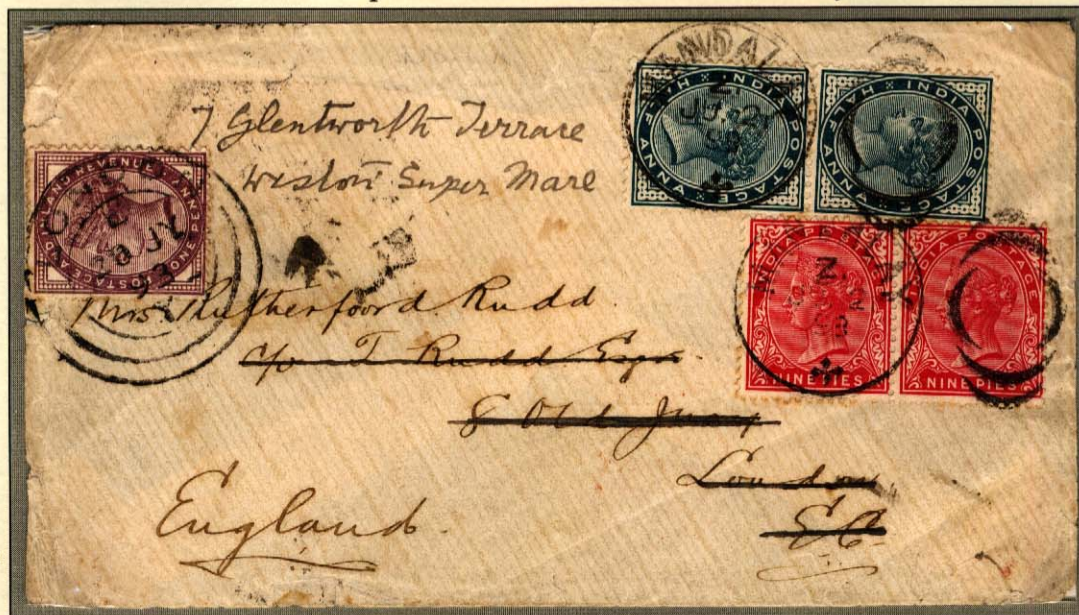 7 Glentworth Terrace
Weston Super Mare
Mrs. Rutherfoord Rudd
c/o T Rudd Esqr
8 Old Jewry
London
E.C.
England
INDIA POSTAGE
HALF ANNA
INDIA POSTAGE
HALF ANNA
INDIA POSTAGE
NINE PIES
INDIA POSTAGE
NINE PIES
POSTAGE AND INLAND REVENUE
ONE PENNY